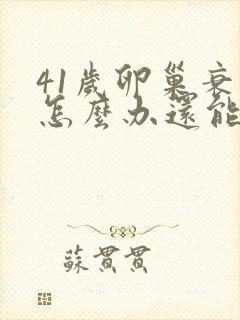 41歲卵巢衰
怎麼办還能
蘇貫貫